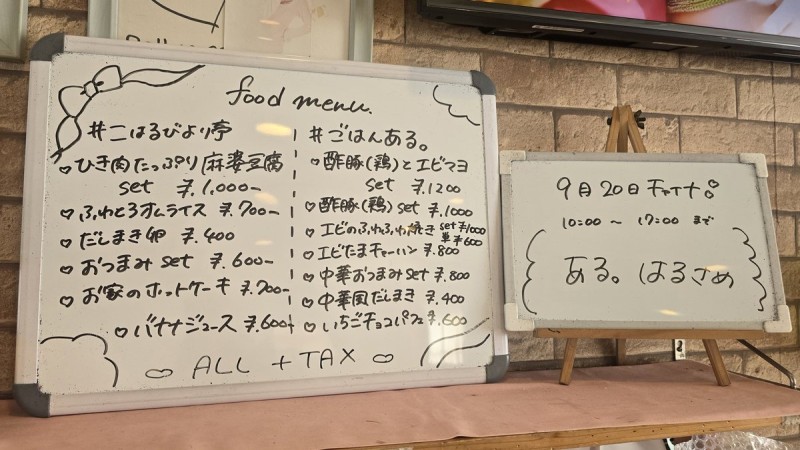 food menu.
#こはるびより亭
♡ひき肉たっぷり麻婆豆腐
set ¥.1.000-
♡ふわとろオムライス ¥.700-
♡だしまき卵 ¥.400
♡おつまみ set ¥.600-
♡お家のホットケーキ ¥.700-
♡バナナジュース ¥.600
#ごはんある。
♡酢豚(鶏)とエビマヨ
set ¥.1200
♡酢豚(鶏) set ¥.1000
♡エビのふわふわ焼き set ¥1000
単 ¥600
♡エビたまチャーハン ¥.800
♡中華おつまみ set ¥.800
♡中華風だしまき ¥.400
♡いちごチョコパフェ ¥.600
ALL + TAX
9月20日 チャイナ
10:00 〜 17:00 まで
ある。はるさめ